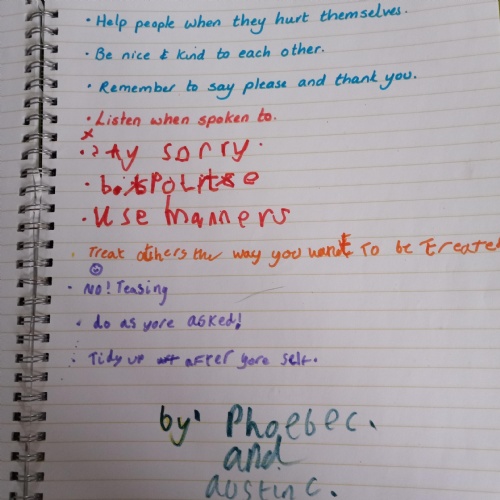 · Help people when they hurt themselves.
· Be nice & kind to each other.
· Remember to say please and thank you.
· Listen when spoken to.
· say sorry.
· be polite
· Use manners
· Treat others the way you want To be Treated
· No! Teasing
· do as yore asked!
· Tidy up after yore self.
by: Phoebe c.
and
austin c.